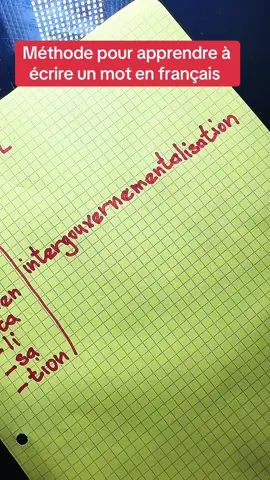 Méthode pour apprendre à
écrire un mot en français
L
intergouvernementalisation
en
ta
-li
-sa
-tion